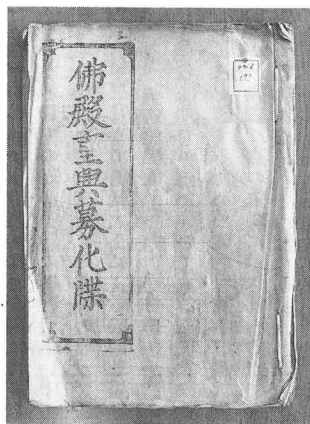 佛殿重興募化牒